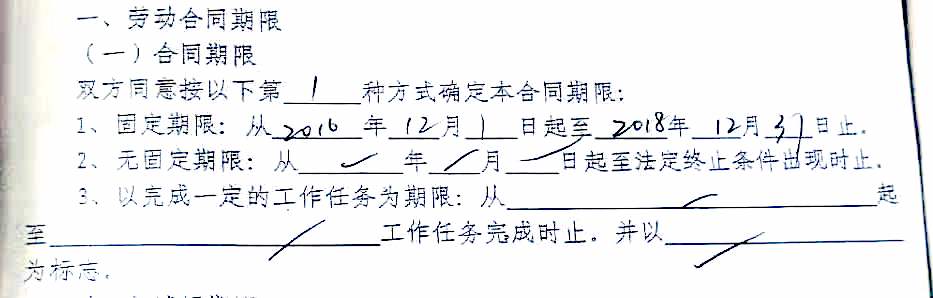 一、劳动合同期限
（一）合同期限
双方同意按以下第 1 种方式确定本合同期限：
1、固定期限：从 2016 年 12 月 1 日起至 2018 年 12 月 31 日止.
2、无固定期限：从 年 月 日起至法定终止条件出现时止.
3、以完成一定的工作任务为期限：从 起
至 工作任务完成时止. 并以
为标志.